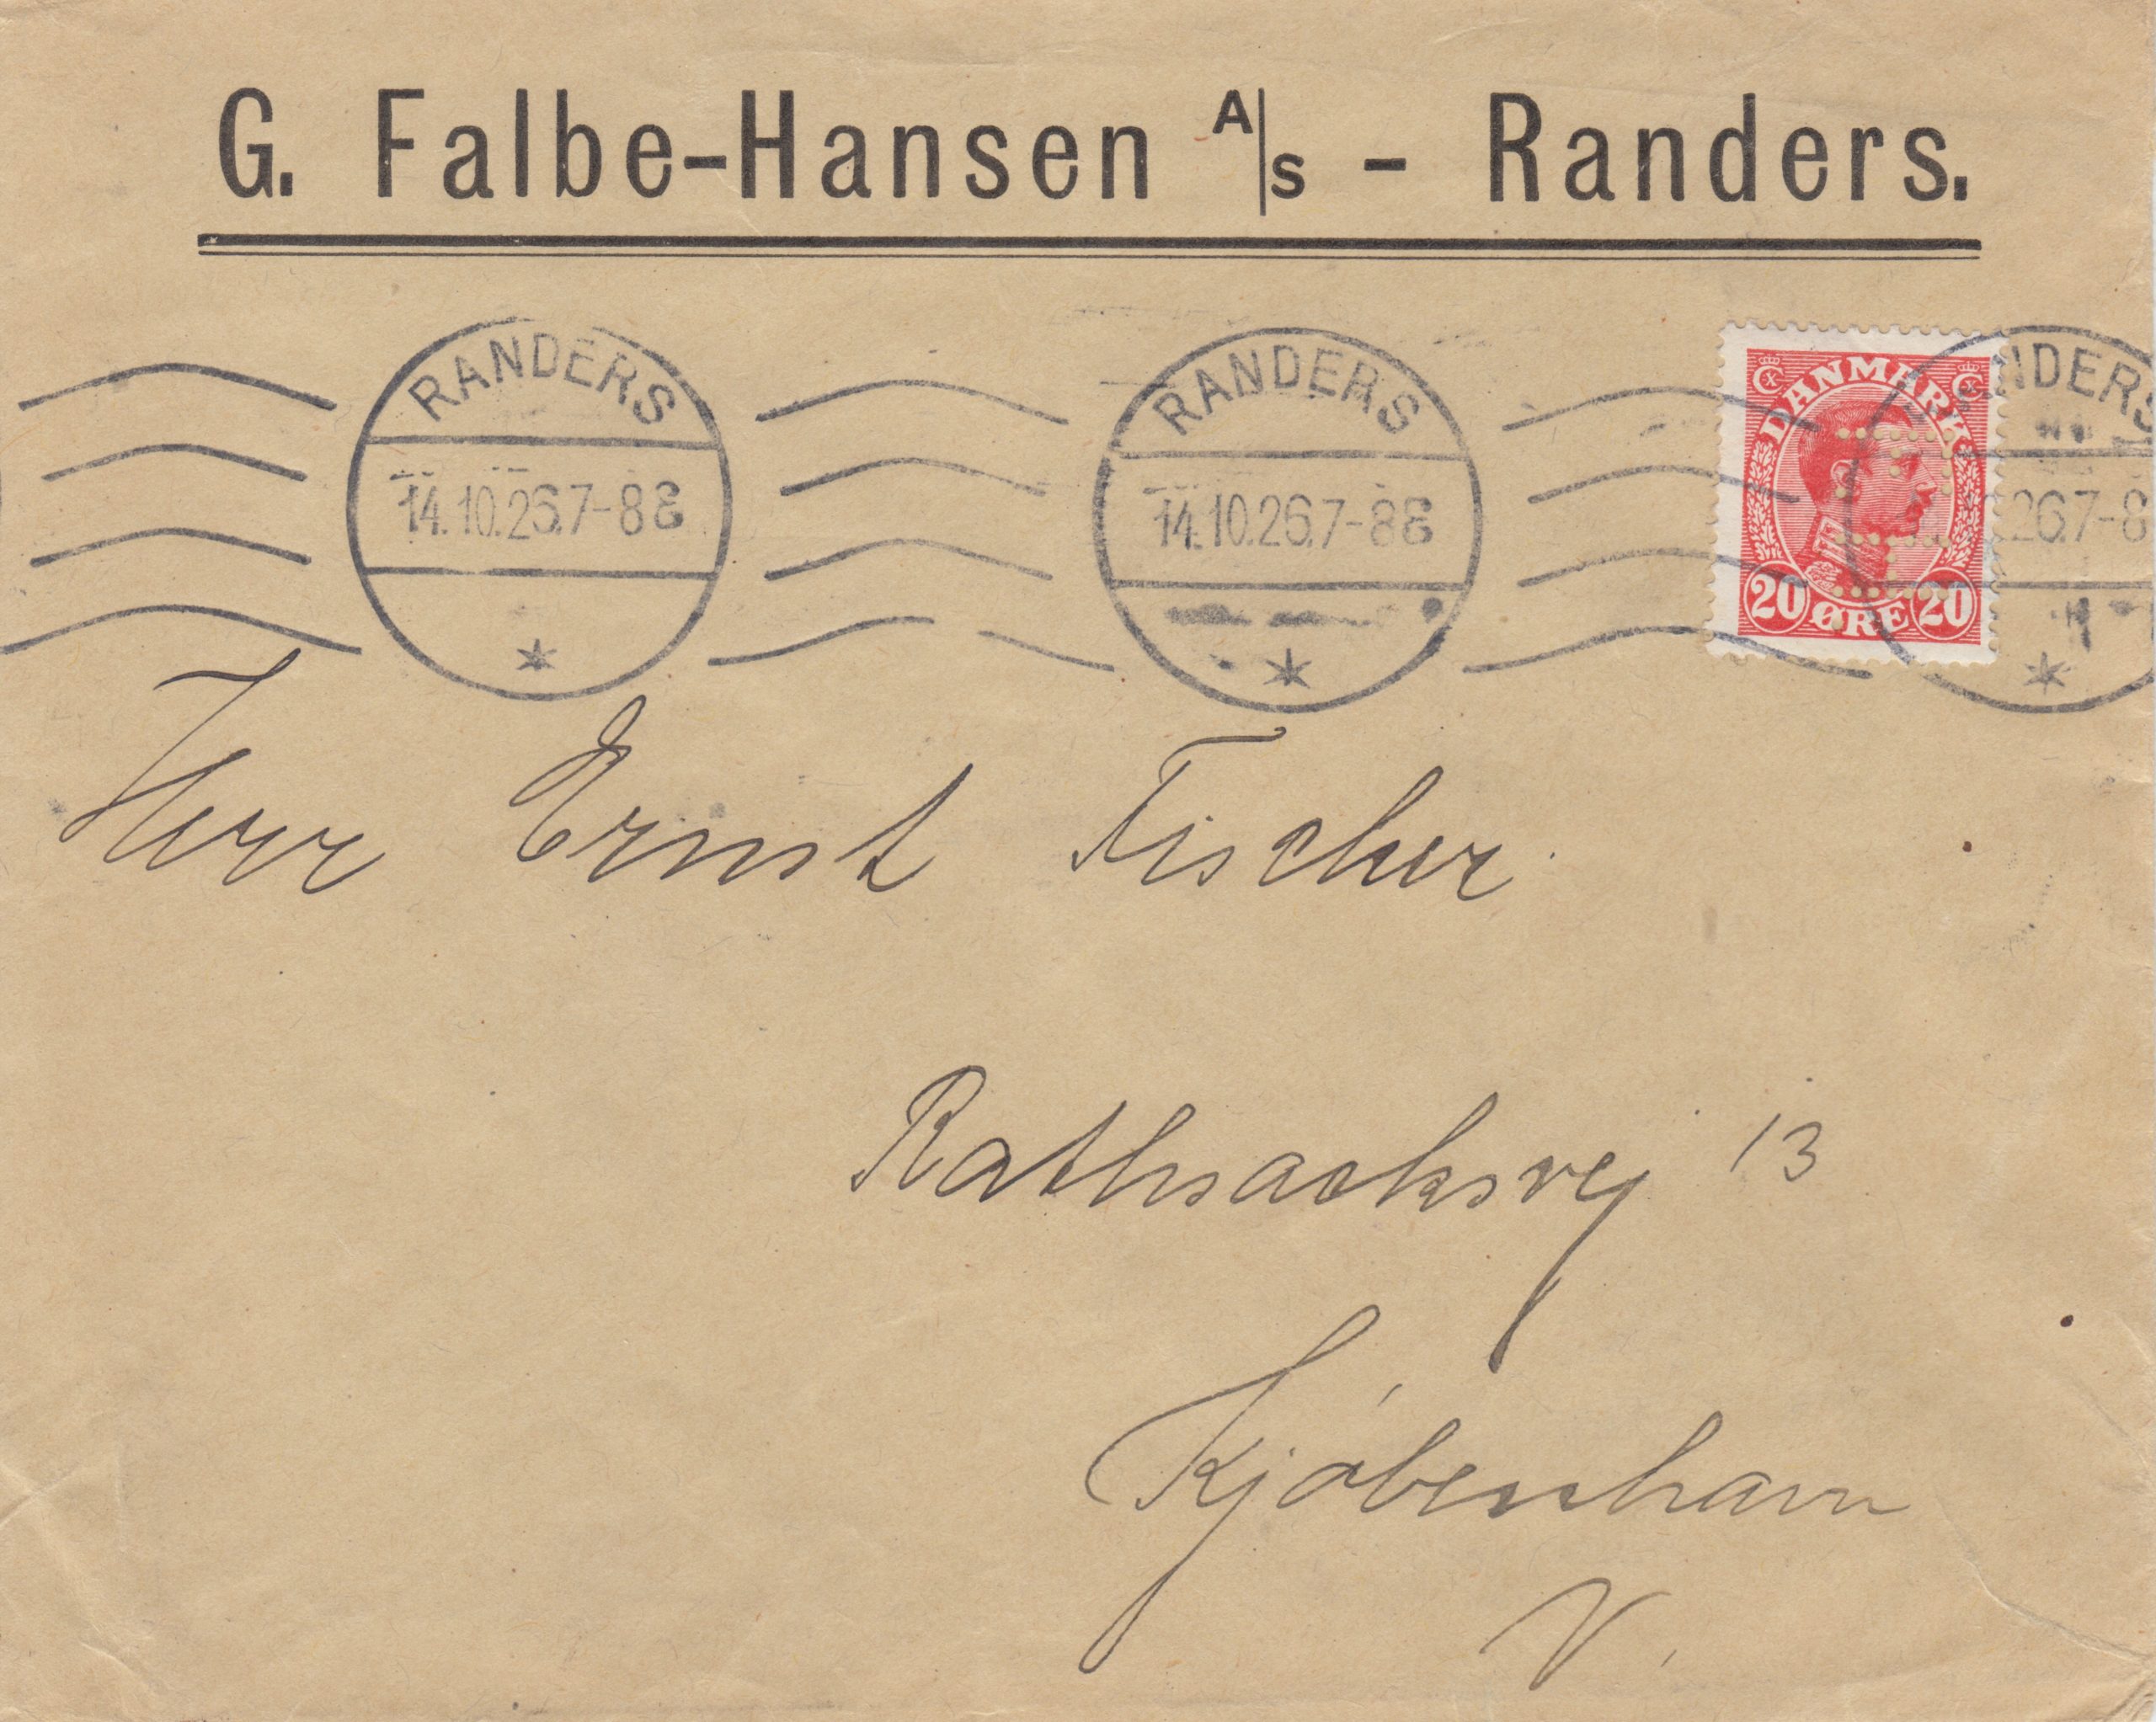 G. Falbe-Hansen A/S - Randers.
RANDERS
14.10.26.7-8E
RANDERS
14.10.26.7-8E
DANMARK
20 ØRE 20
NDERS
26.7-8
Herr Ernst Fischer
Rathsacksvej 13
Kjøbenhavn
V.